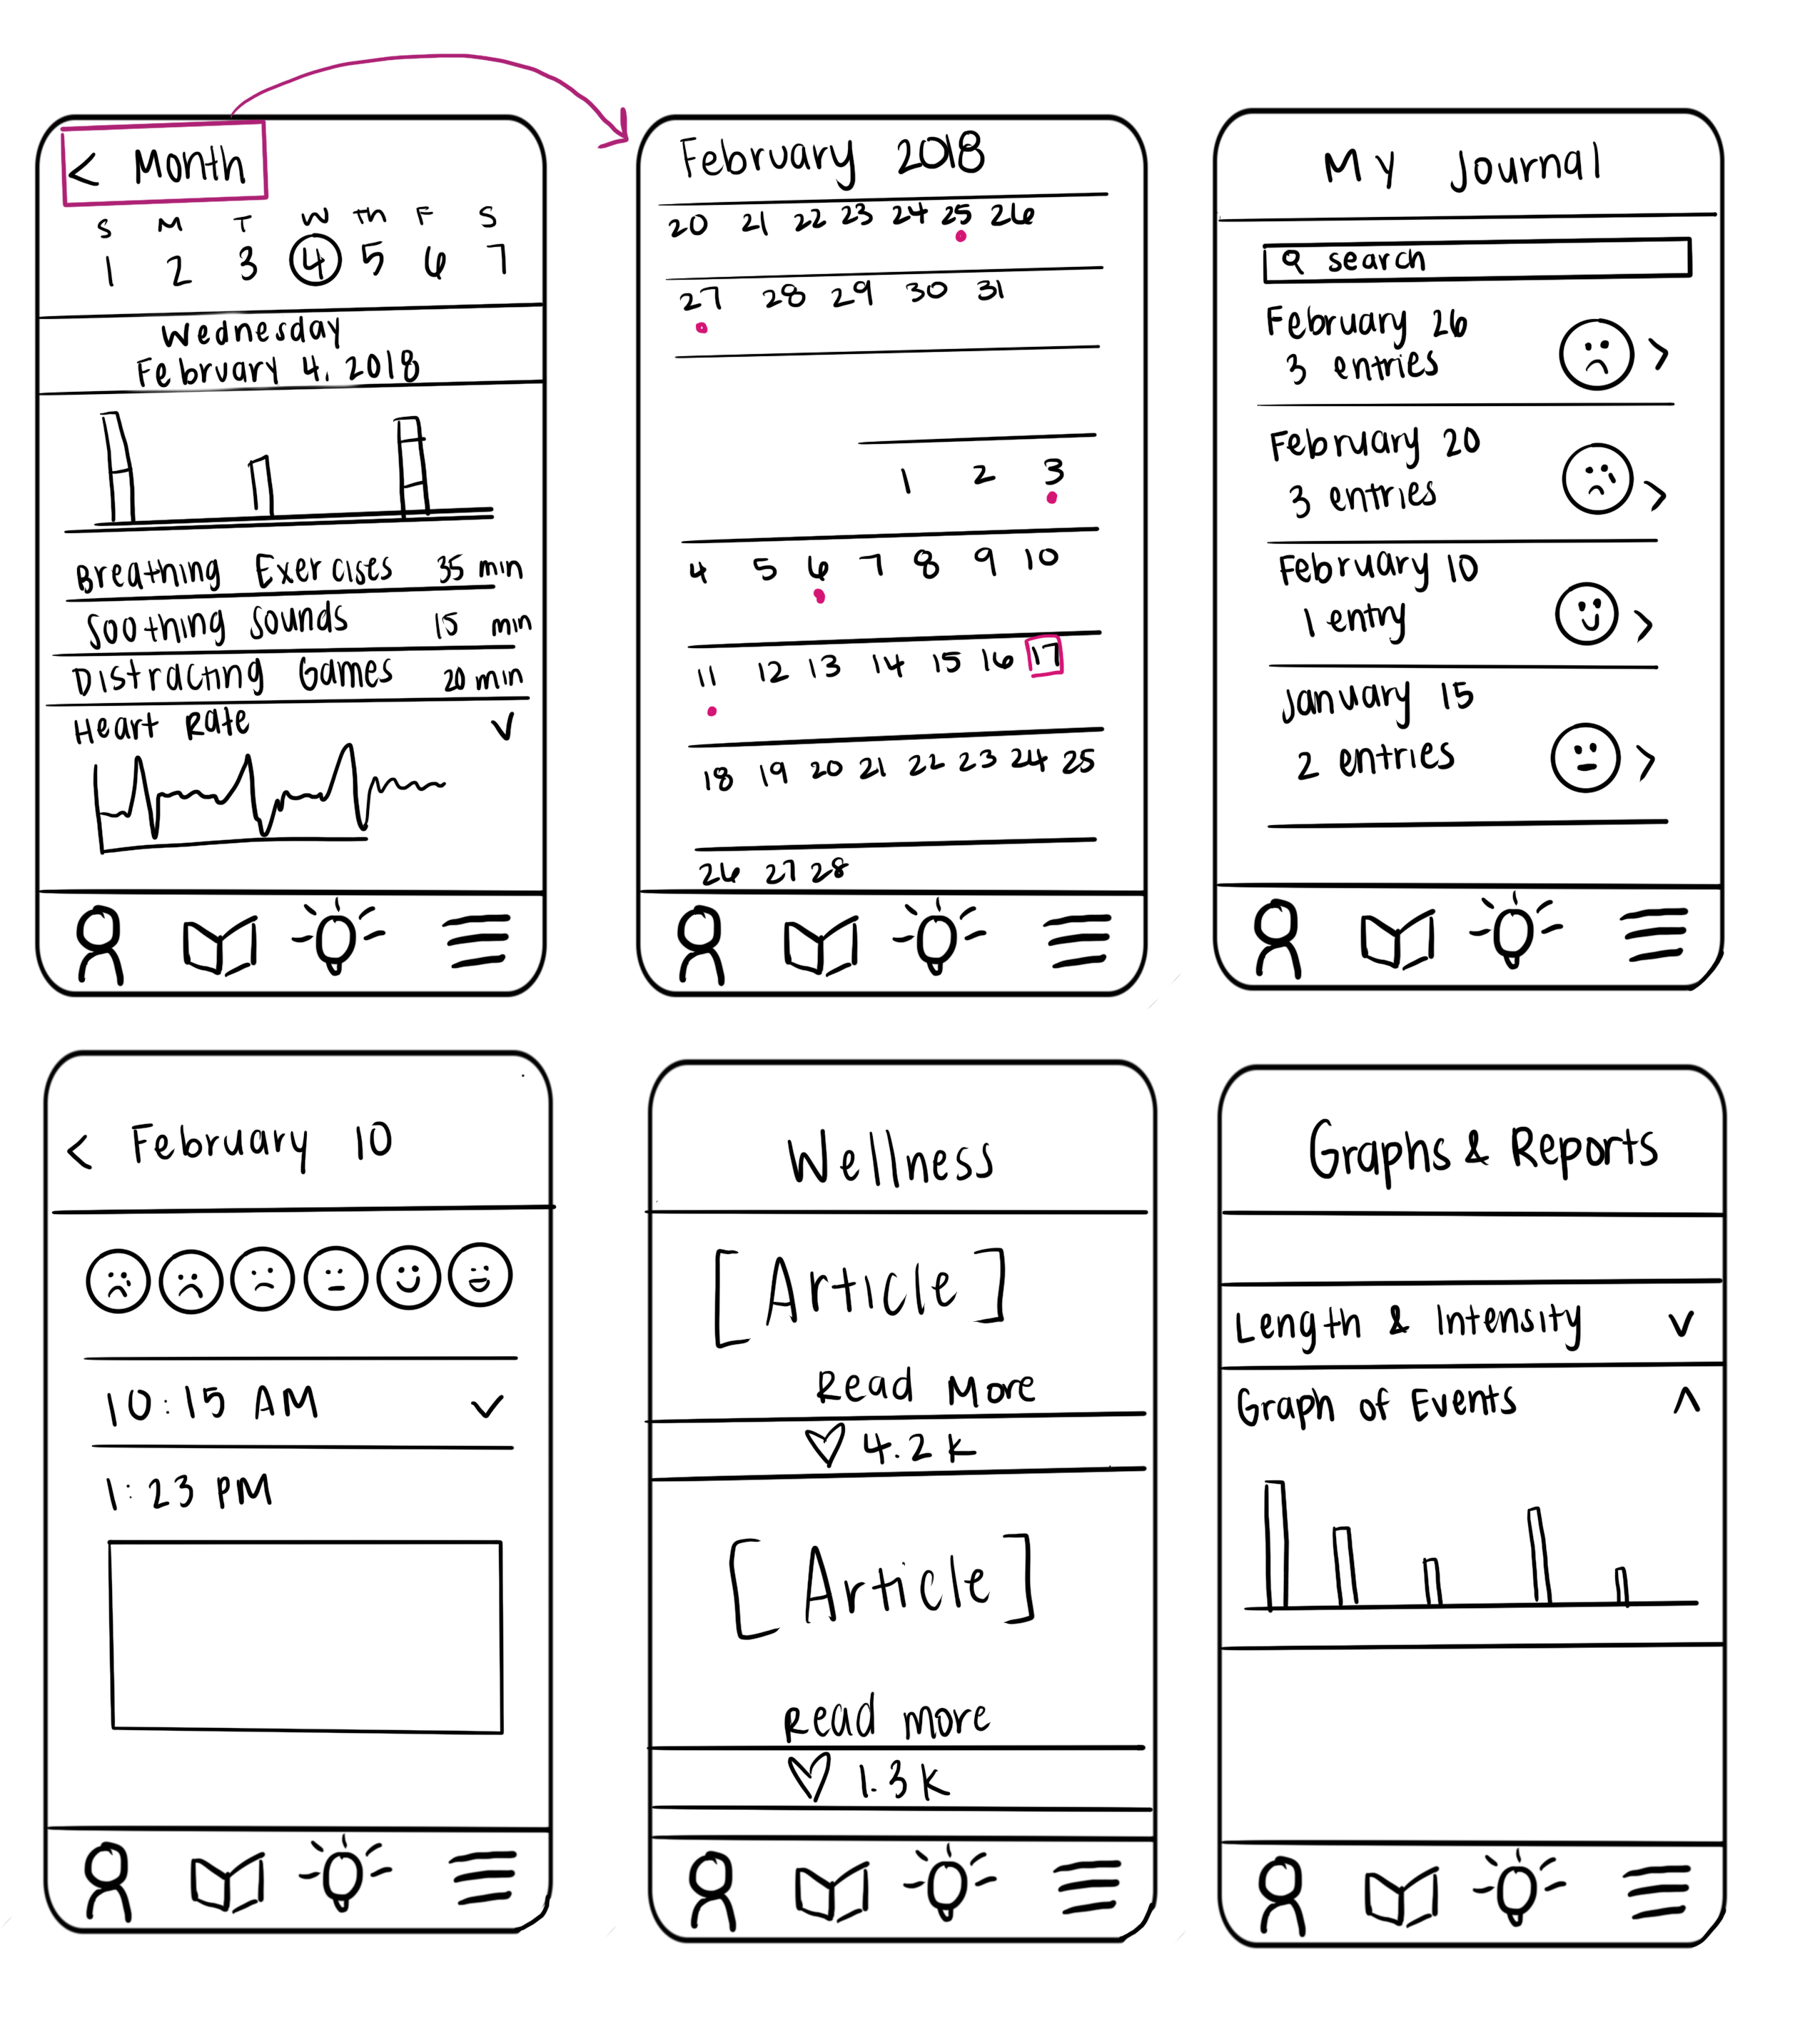 < Month
S M T W Th F S
1 2 3 4 5 6 7
Wednesday
February 4, 2018
Breathing Exercises 35 min
Soothing Sounds 15 min
Distracting Games 20 min
Heart Rate
February 2018
20 21 22 23 24 25 26
27 28 29 30 31
1 2 3
4 5 6 7 8 9 10
11 12 13 14 15 16 17
18 19 20 21 22 23 24 25
26 27 28
My Journal
search
February 26
3 entries >
February 20
3 entries >
February 10
1 entry >
January 15
2 entries >
< February 10
10:15 AM
1:23 PM
Wellness
[Article]
Read More
4.2k
[Article]
Read more
1.3k
Graphs & Reports
Length & Intensity
Graph of Events